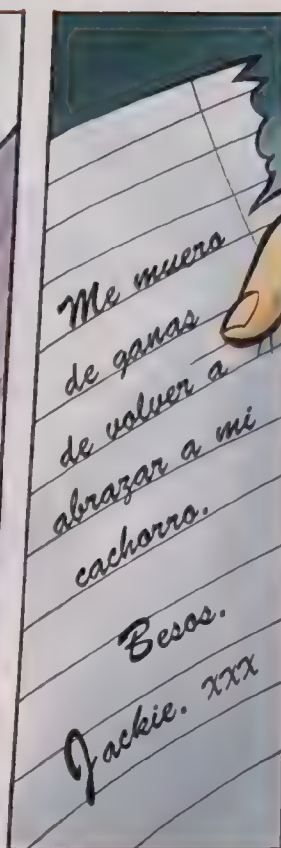 Me muero
de ganas
de volver a
abrazar a mi
cachorro.
Besos.
Jackie. xxx